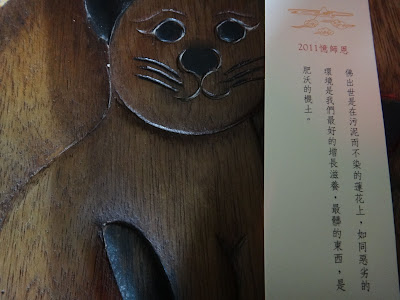 2011憶師恩
佛出世是在污泥而不染的蓮花上，如同惡劣的
環境是我們最好的增長滋養，最髒的東西，是
肥沃的機土。